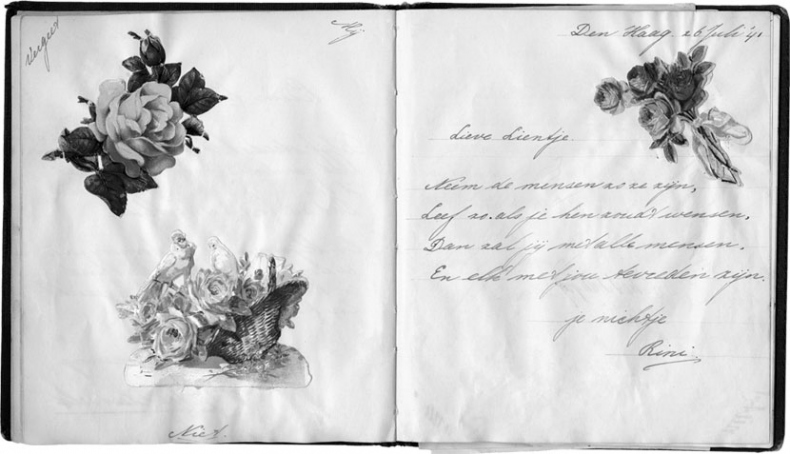 Vergeet
Mij
Niet.
Den Haag. 26 Juli '41
Lieve Lientje.
Neem de mensen zo ze zijn,
Leef zo. als je hen zoudt wensen.
Dan zal jij met alle mensen.
En elk met jou tevreden zijn.
je nichtje
Rini.